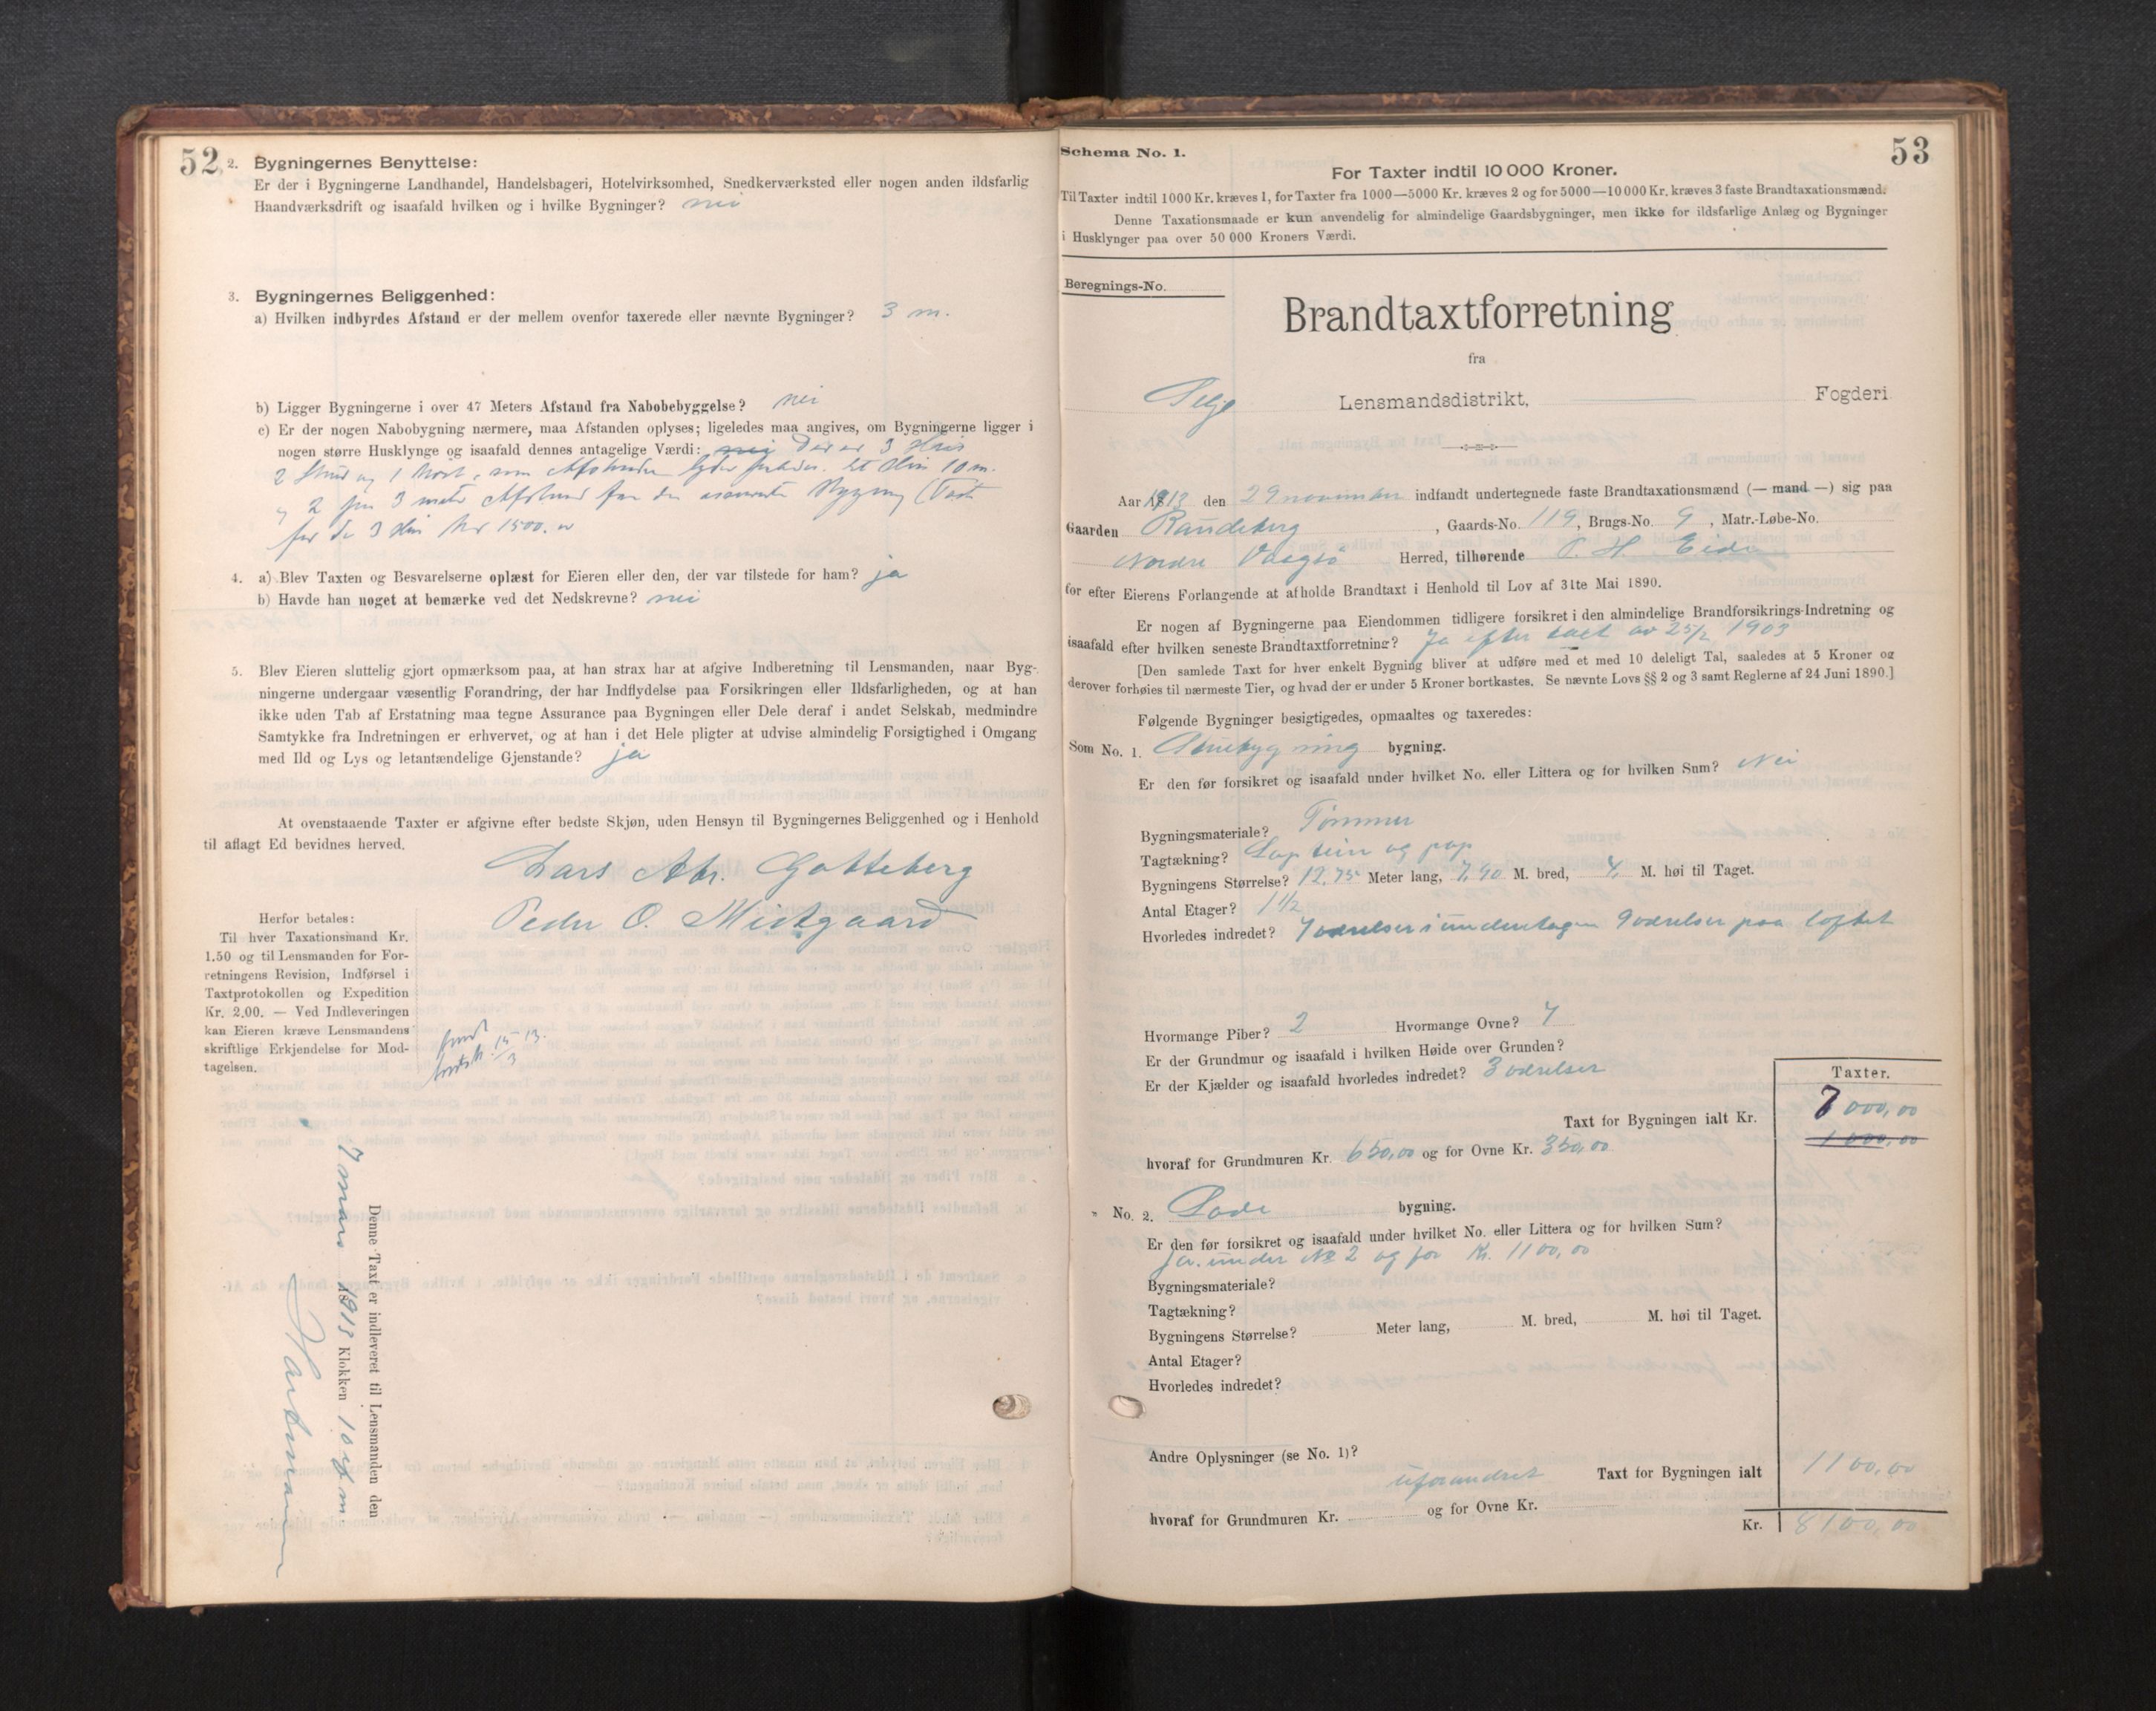 52
2. Bygningernes Benyttelse:
Er der i Bygningerne Landhandel, Handelsbageri, Hotelvirksomhed, Snedkerværksted eller nogen anden ildsfarlig
Haandværksdrift og isaafald hvilken og i hvilke Bygninger? nei
3. Bygningernes Beliggenhed:
a) Hvilken indbyrdes Afstand er der mellem ovenfor taxerede eller nævnte Bygninger? 3 m.
b) Ligger Bygningerne i over 47 Meters Afstand fra Nabobebyggelse? nei
c) Er der nogen Nabobygning nærmere, maa Afstanden oplyses; ligeledes maa angives, om Bygningerne ligger i
nogen større Husklynge og isaafald dennes antagelige Værdi: nei Der er 3 Hus
2 Syd og 1 Nord, som Afstanden
10 m.
2 3 meter Afstand fra
for de 3 Hus Kr 1500.00
4. a) Blev Taxten og Besvarelserne oplæst for Eieren eller den, der var tilstede for ham? ja
b) Havde han noget at bemærke ved det Nedskrevne? nei
5. Blev Eieren sluttelig gjort opmærksom paa, at han strax har at afgive Indberetning til Lensmanden, naar Byg-
ningerne undergaar væsentlig Forandring, der har Indflydelse paa Forsikringen eller Ildsfarligheden, og at han
ikke uden Tab af Erstatning maa tegne Assurance paa Bygningen eller Dele deraf i andet Selskab, medmindre
Samtykke fra Indretningen er erhvervet, og at han i det Hele pligter at udvise almindelig Forsigtighed i Omgang
med Ild og Lys og letantændelige Gjenstande? ja
At ovenstaaende Taxter er afgivne efter bedste Skjøn, uden Hensyn til Bygningernes Beliggenhed og i Henhold
til aflagt Ed bevidnes herved.
Lars Abr. Gotteberg
Peder O. Midtgaard
Herfor betales:
Til hver Taxationsmand Kr.
1.50 og til Lensmanden for For-
retningens Revision, Indførsel i
Taxtprotokollen og Expedition
Kr. 2.00. — Ved Indleveringen
kan Eieren kræve Lensmandens
skriftlige Erkjendelse for Mod-
tagelsen.
15/3 13.
Denne Taxt er indleveret til Lensmanden den
7 mars 1913 Klokken 10 fm
Hartmann
53
Schema No. 1.
For Taxter indtil 10 000 Kroner.
Til Taxter indtil 1000 Kr. kræves 1, for Taxter fra 1000—5000 Kr. kræves 2 og for 5000—10 000 Kr. kræves 3 faste Brandtaxationsmænd.
Denne Taxationsmaade er kun anvendelig for almindelige Gaardsbygninger, men ikke for ildsfarlige Anlæg og Bygninger
i Husklynger paa over 50 000 Kroners Værdi.
Beregnings-No.
Brandtaxtforretning
fra
Selje Lensmandsdistrikt, Fogderi.
Aar 1912 den 29 november indfandt undertegnede faste Brandtaxationsmænd (— mand —) sig paa
Gaarden Raudeberg, Gaards-No. 119, Brugs-No. 9, Matr.-Løbe-No.
Nordre Vaagsö Herred, tilhørende P. H. Eide
for efter Eierens Forlangende at afholde Brandtaxt i Henhold til Lov af 31te Mai 1890.
Er nogen af Bygningerne paa Eiendommen tidligere forsikret i den almindelige Brandforsikrings-Indretning og
isaafald efter hvilken seneste Brandtaxtforretning? Ja efter taxt av 25/2 1903
[Den samlede Taxt for hver enkelt Bygning bliver at udføre med et med 10 deleligt Tal, saaledes at 5 Kroner og
derover forhøies til nærmeste Tier, og hvad der er under 5 Kroner bortkastes. Se nævnte Lovs §§ 2 og 3 samt Reglerne af 24 Juni 1890.]
Følgende Bygninger besigtigedes, opmaaltes og taxeredes:
Som No. 1. Stuebygning bygning.
Er den før forsikret og isaafald under hvilket No. eller Littera og for hvilken Sum? Nei
Bygningsmateriale? Tømmer
Tagtækning? og pap
Bygningens Størrelse? 12,75 Meter lang, 7,40 M. bred, 4, M. høi til Taget.
Antal Etager? 1 1/2
Hvorledes indredet? 4 værelser i underetagen 9 værelser paa loftet
Hvormange Piber? 2 Hvormange Ovne? 4
Er der Grundmur og isaafald i hvilken Høide over Grunden?
Er der Kjælder og isaafald hvorledes indredet? 3 værelser
Taxter.
Taxt for Bygningen ialt Kr. 7 000,00
1 000,00
hvoraf for Grundmuren Kr. 650,00 og for Ovne Kr. 350,00
" No. 2. Lade bygning.
Er den før forsikret og isaafald under hvilket No. eller Littera og for hvilken Sum?
Ja. under No 2 og for Kr. 1100,00
Bygningsmateriale?
Tagtækning?
Bygningens Størrelse? Meter lang, M. bred, M. høi til Taget.
Antal Etager?
Hvorledes indredet?
Andre Oplysninger (se No. 1)?
uforandret Taxt for Bygningen ialt 1100,00
hvoraf for Grundmuren Kr. og for Ovne Kr.
Kr. 8100,00